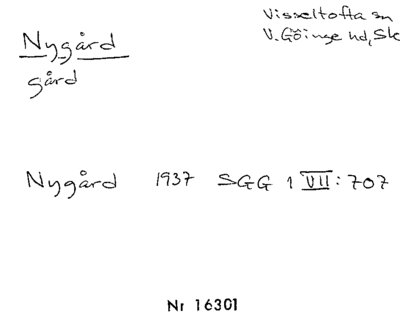 Nygård
gård
Visseltofta sn
V. Göinge hd, Sk
Nygård 1937 SGG 1 VII: 707
Nr 16301